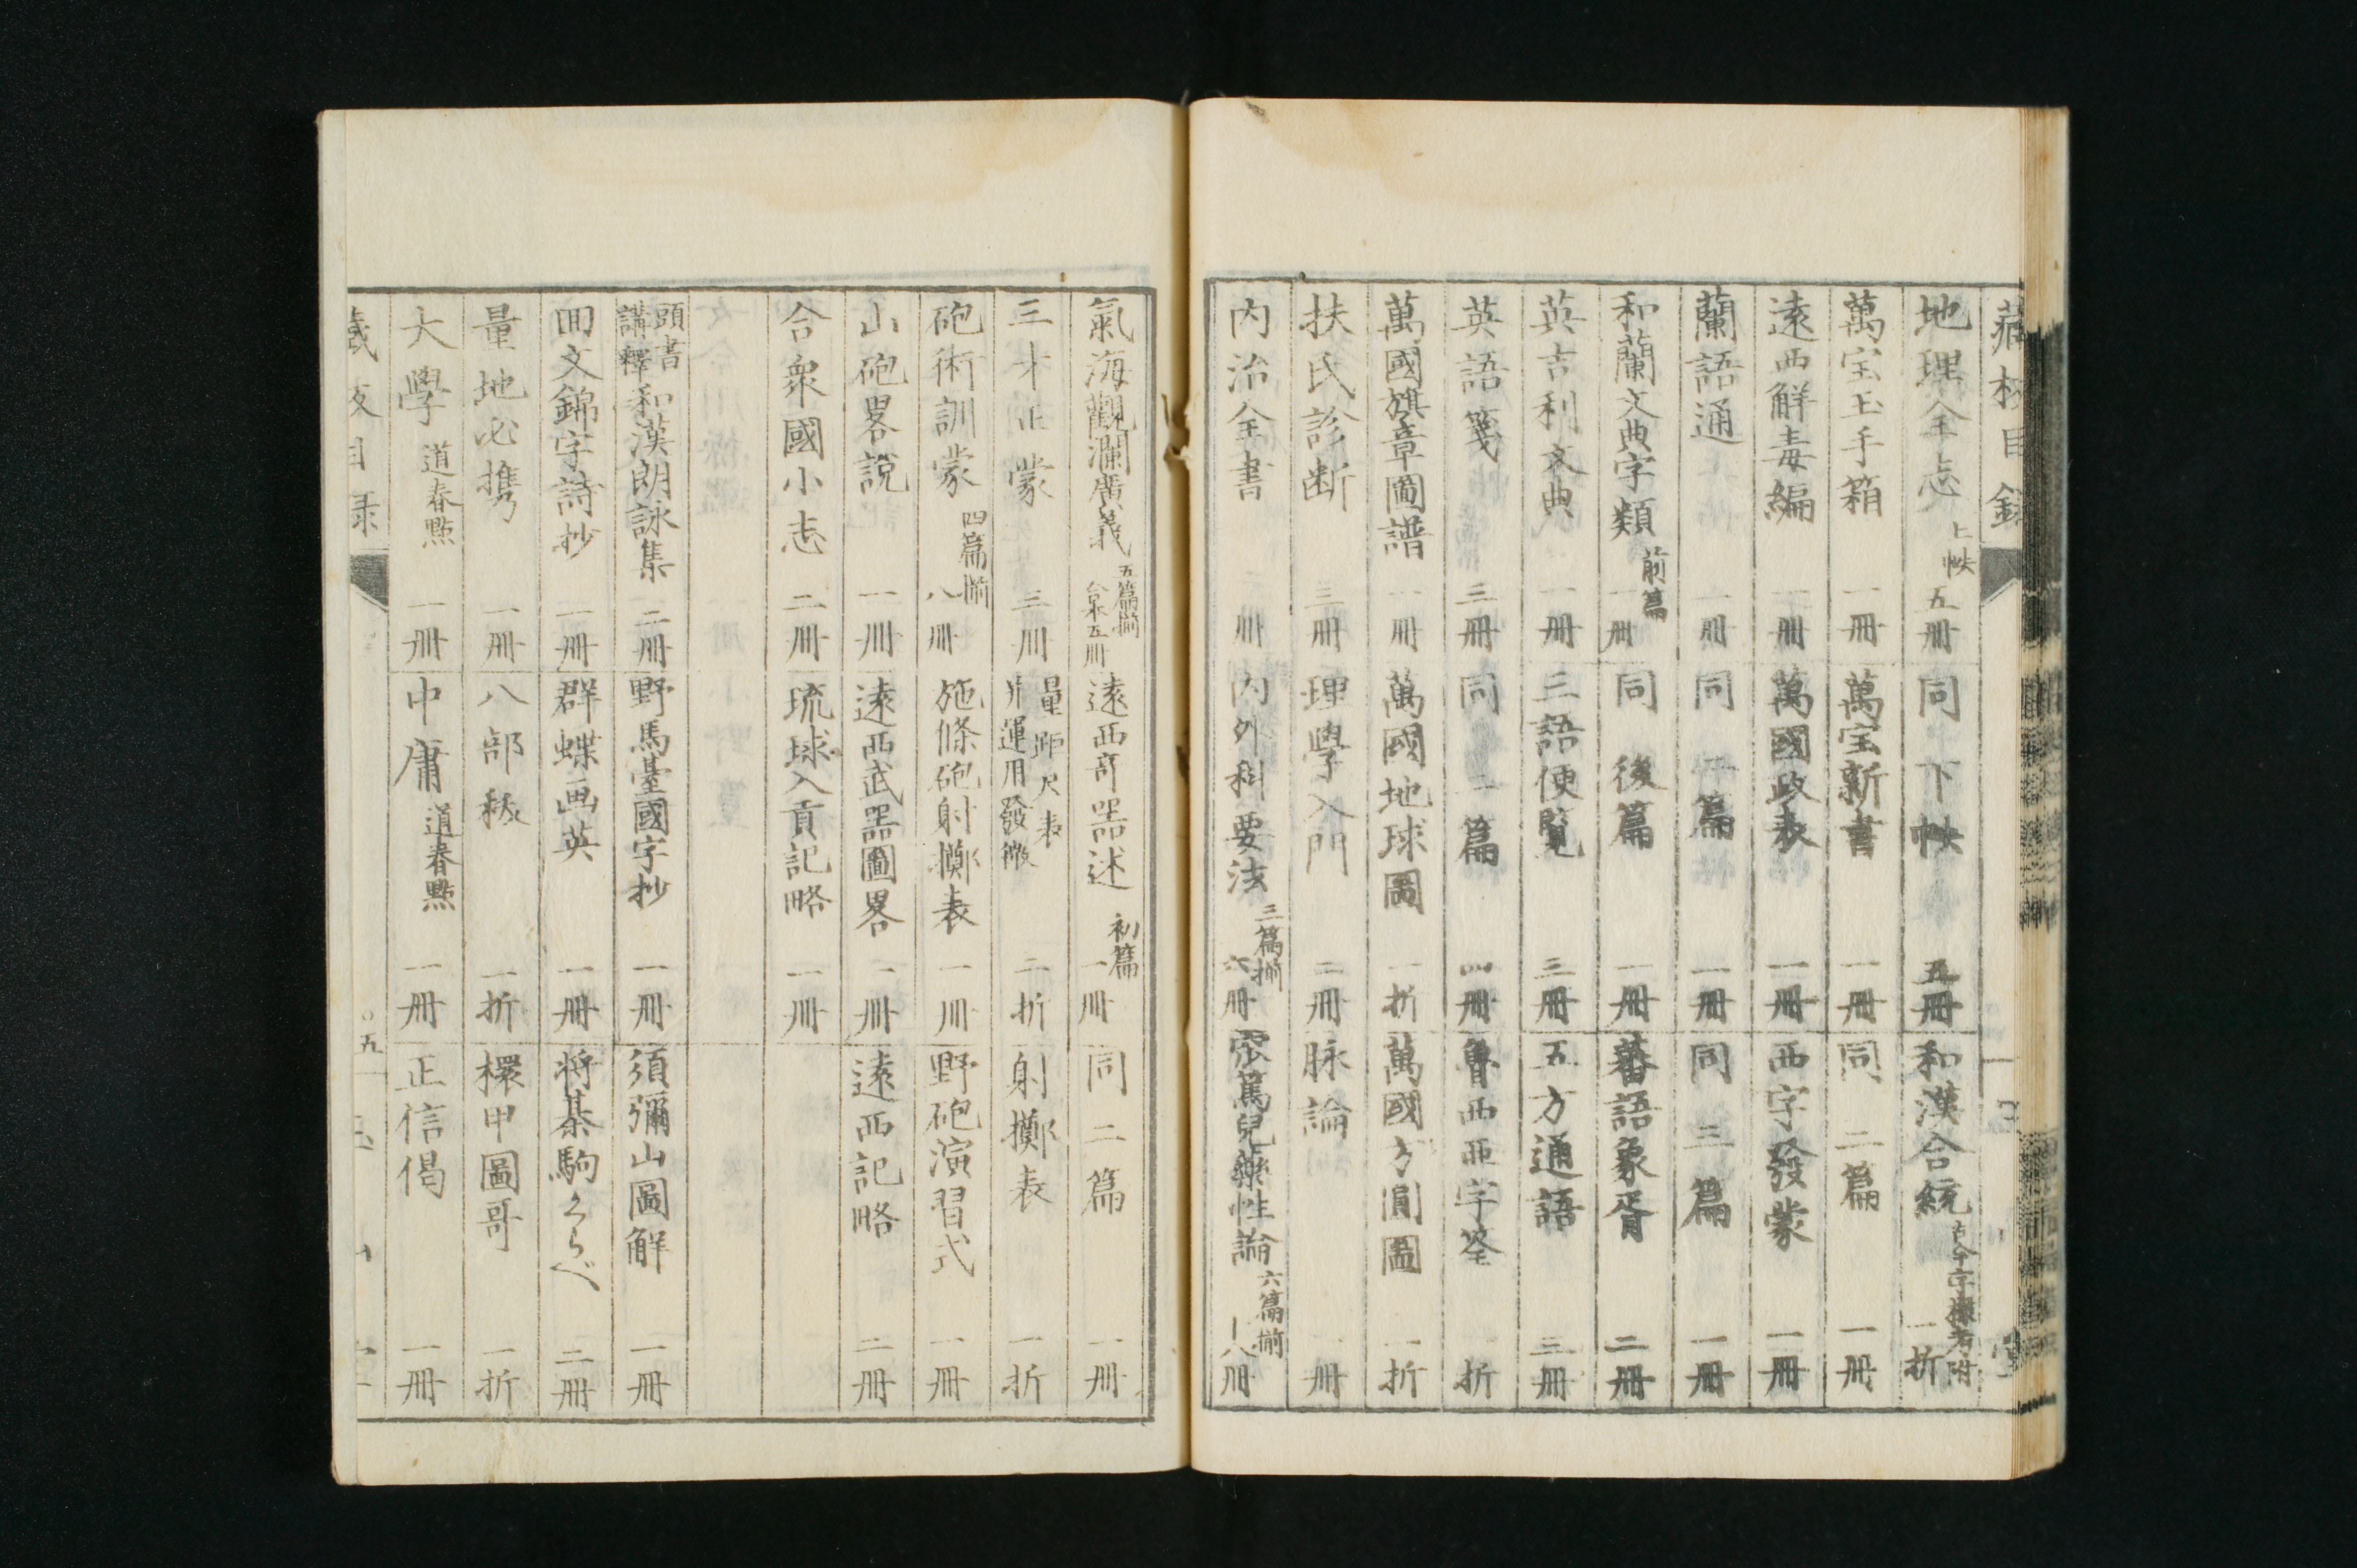 藏板目錄
地理全志 上帙 五冊 同 下帙 五冊 和漢合統 一折
萬宝玉手箱 一冊 萬宝新書 一冊 同 二篇 一冊
遠西觧毒編 一冊 萬國政表 一冊 西字發蒙 一冊
蘭語通 一冊 同 二篇 一冊 同 三篇 一冊
和蘭文典字類 前篇 一冊 同 後篇 一冊 蕃語象胥 二冊
英吉利文典 一冊 三語便覧 三冊 五方通語 三冊
英語箋 三冊 同 二篇 四冊 魯西亜字筌 一折
萬國旗章圖譜 一冊 萬國地球圖 一折 萬國方圓圖 一折
扶氏診断 三冊 理學入門 二冊 脉論 一冊
内治全書 三冊 内外科要法 三篇揃 六冊 窊篤兒藥性論 六篇揃 十八冊
氣海觀瀾廣義 五篇揃 合本五冊 遠西奇噐述 初篇 一冊 同 二篇 一冊
三才正蒙 三冊 量距尺表并運用發微 二折 射擲表 一折
砲術訓蒙 四篇揃 八冊 施條砲射擲表 一冊 野砲演習式 一冊
山砲畧說 一冊 遠西武噐圖畧 一冊 遠西記略 二冊
合衆國小志 二冊 琉球入貢記略 一冊
頭書講釋 和漢朗詠集 二冊 野馬臺國字抄 一冊 須彌山圖解 一冊
回文錦字詩抄 一冊 群蝶画英 一冊 将棊駒くらべ 二冊
量地必携 一冊 八部秡 一折 擐甲圖哥 一折
大學 道春點 一冊 中庸 道春點 一冊 正信偈 一冊